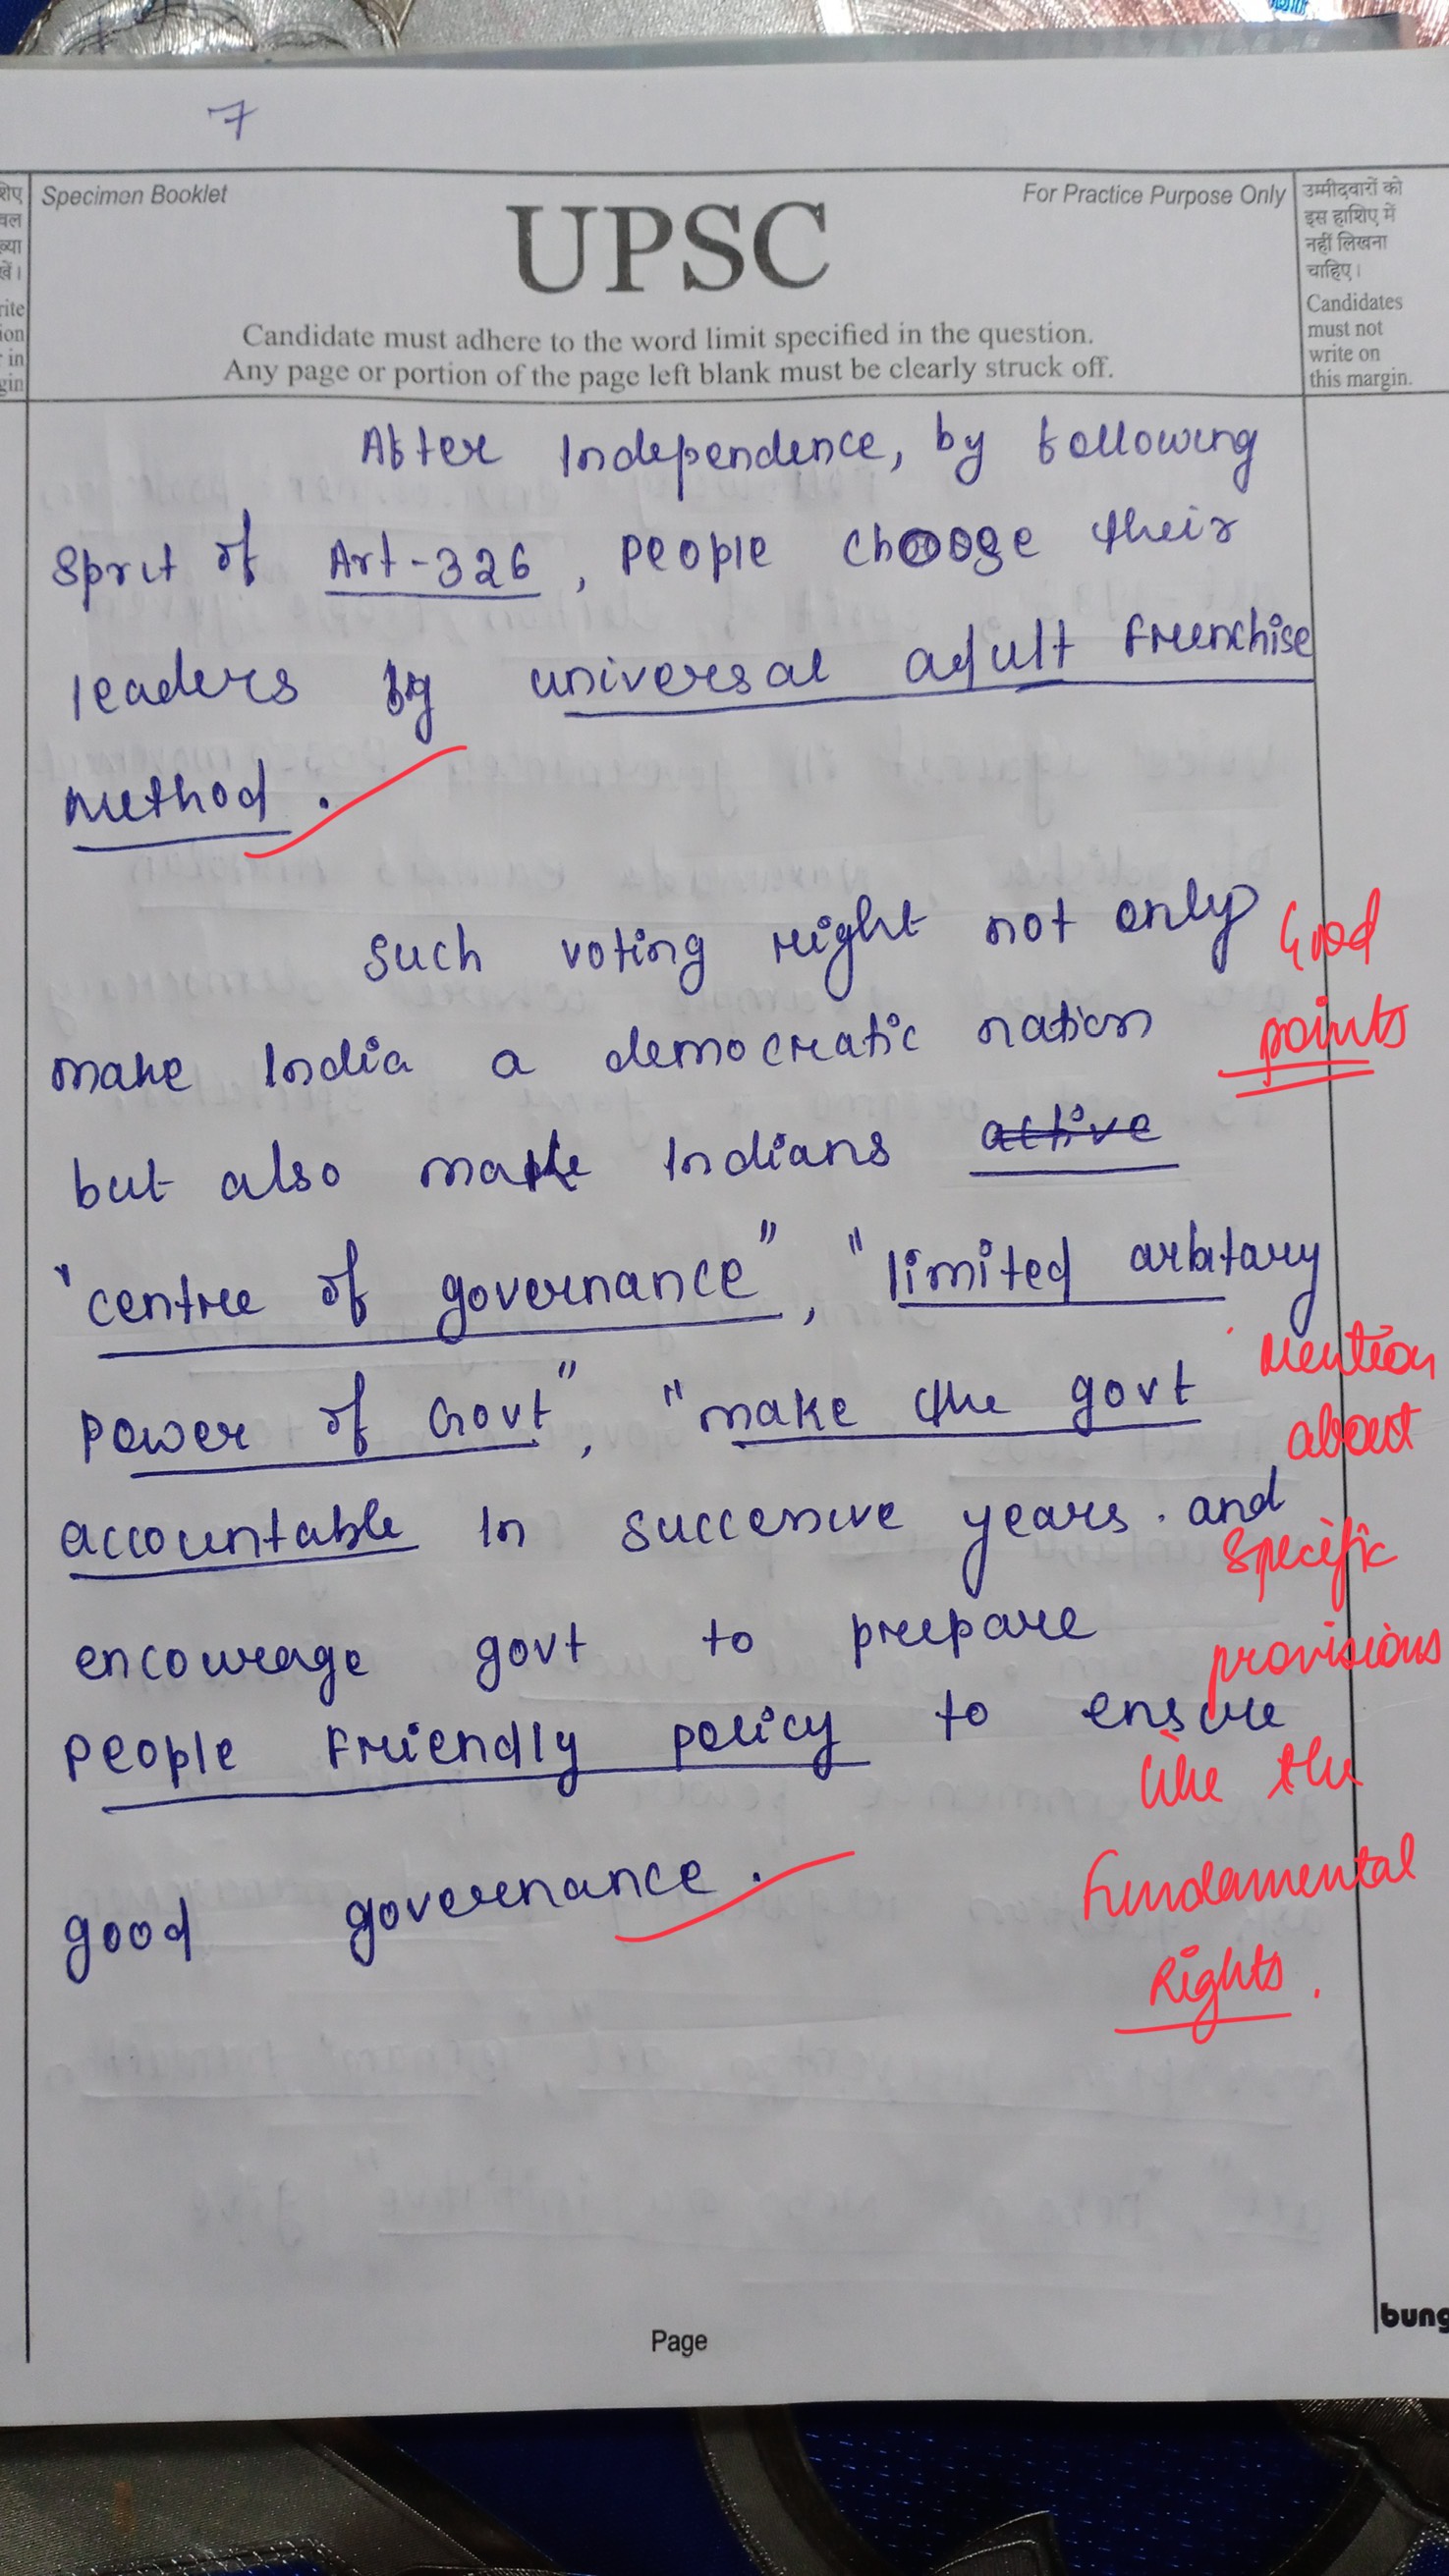 7
Specimen Booklet
For Practice Purpose Only
UPSC
Candidate must adhere to the word limit specified in the question.
Any page or portion of the page left blank must be clearly struck off.
उम्मीदवारों को
इस हाशिए में
नहीं लिखना
चाहिए।
Candidates
must not
write on
this margin.
After Independence, by following
Sprit of Art-326, people choose their
leaders by universal adult Frenchise
method.
Such voting right not only
make India a democratic nation
but also make Indians active
"centre of governance", "limited arbitary
power of Govt", "make the govt
accountable In successive years. and
encourage govt to prepare
people Friendly policy to ensure
good governance.
Good
points
Mention
about
specific
provisions
like the
Fundamental
Rights.
Page
bung